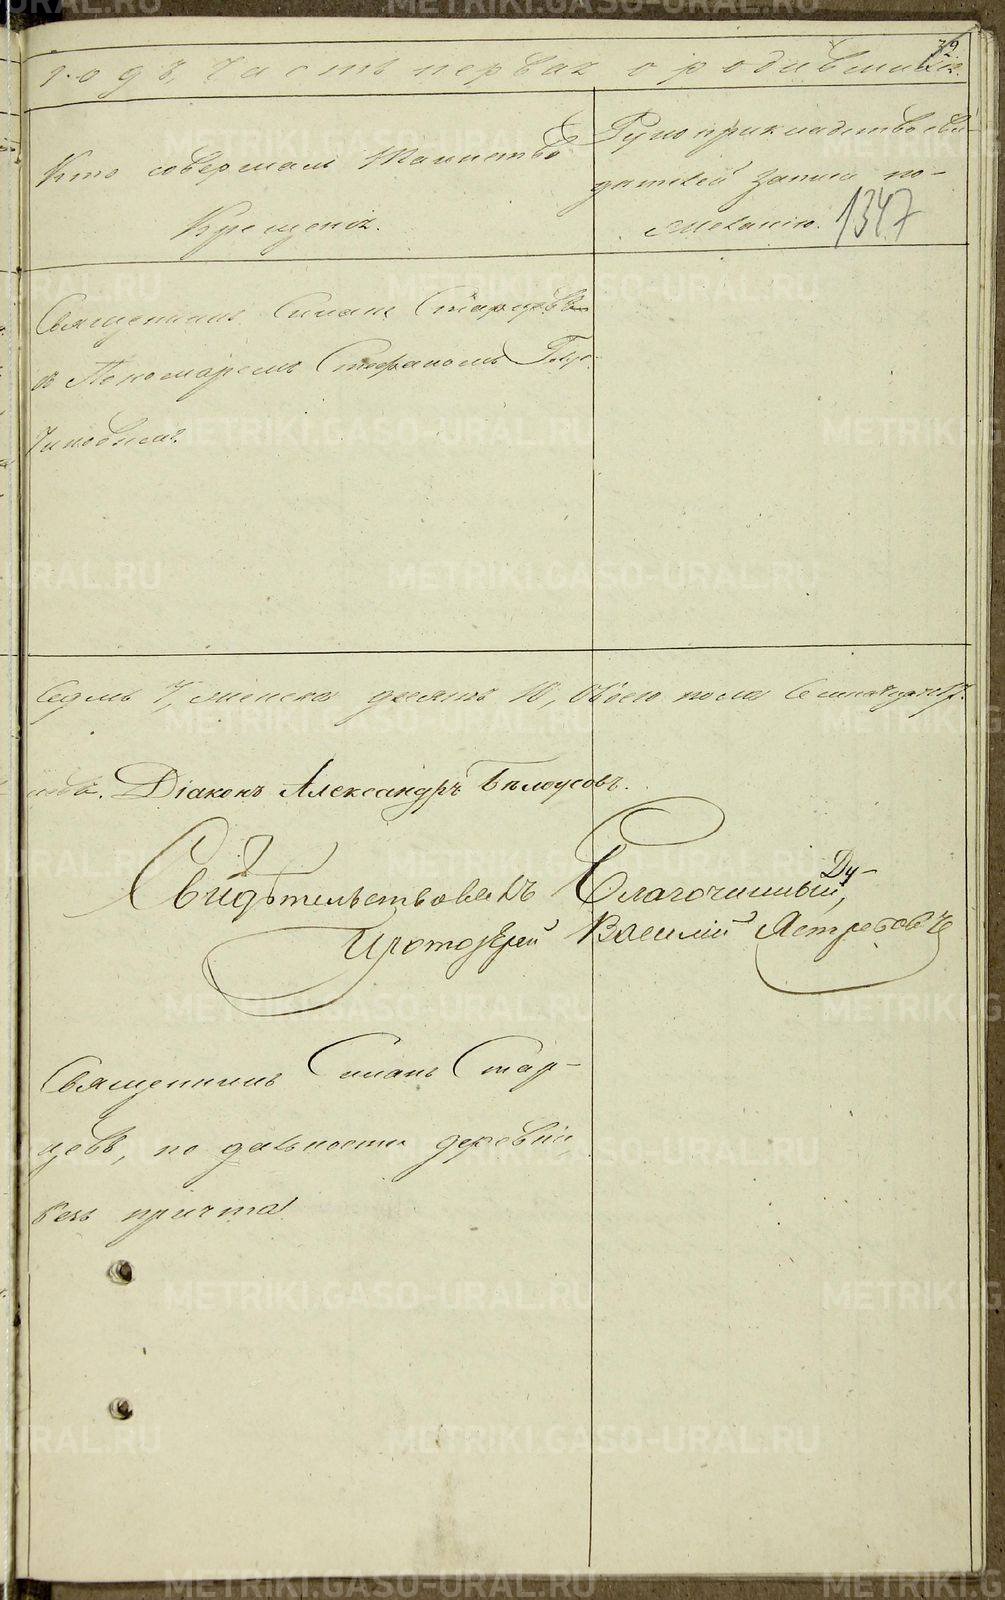 79
годъ, часть первая о родившихся.
Кто совершалъ таинство
Крещенія.
Рукоприкладство сви-
дѣтелей записи по
желанію.
1347
Священникъ Симанъ Старцевъ
съ Пономаремъ Стефаномъ
седмь 7, женска десять 10, обоего пола семнадцать 17.
Діаконъ Александръ Бѣлоусовъ.
Свидѣтельствовалъ Благочинный, Ду-
Протоіерей Василій Ястребовъ
Священникъ Симанъ Стар-
цевъ, по дальности деревни
безъ причта
METRIKI.GASO-URAL.RU